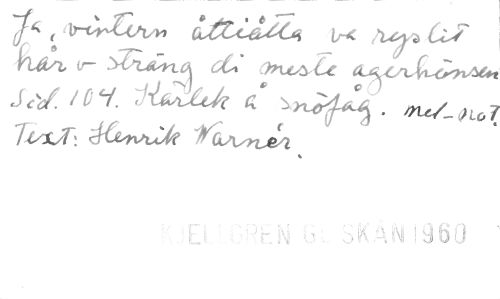 Ja, vintern åttiåtta va ryslit
hår o sträng di meste agerhönsen
Sid. 104. Kärlek å snöfåg. mel-not.
Text: Henrik Warnér.
KJELLGREN G. SKÅN 1960